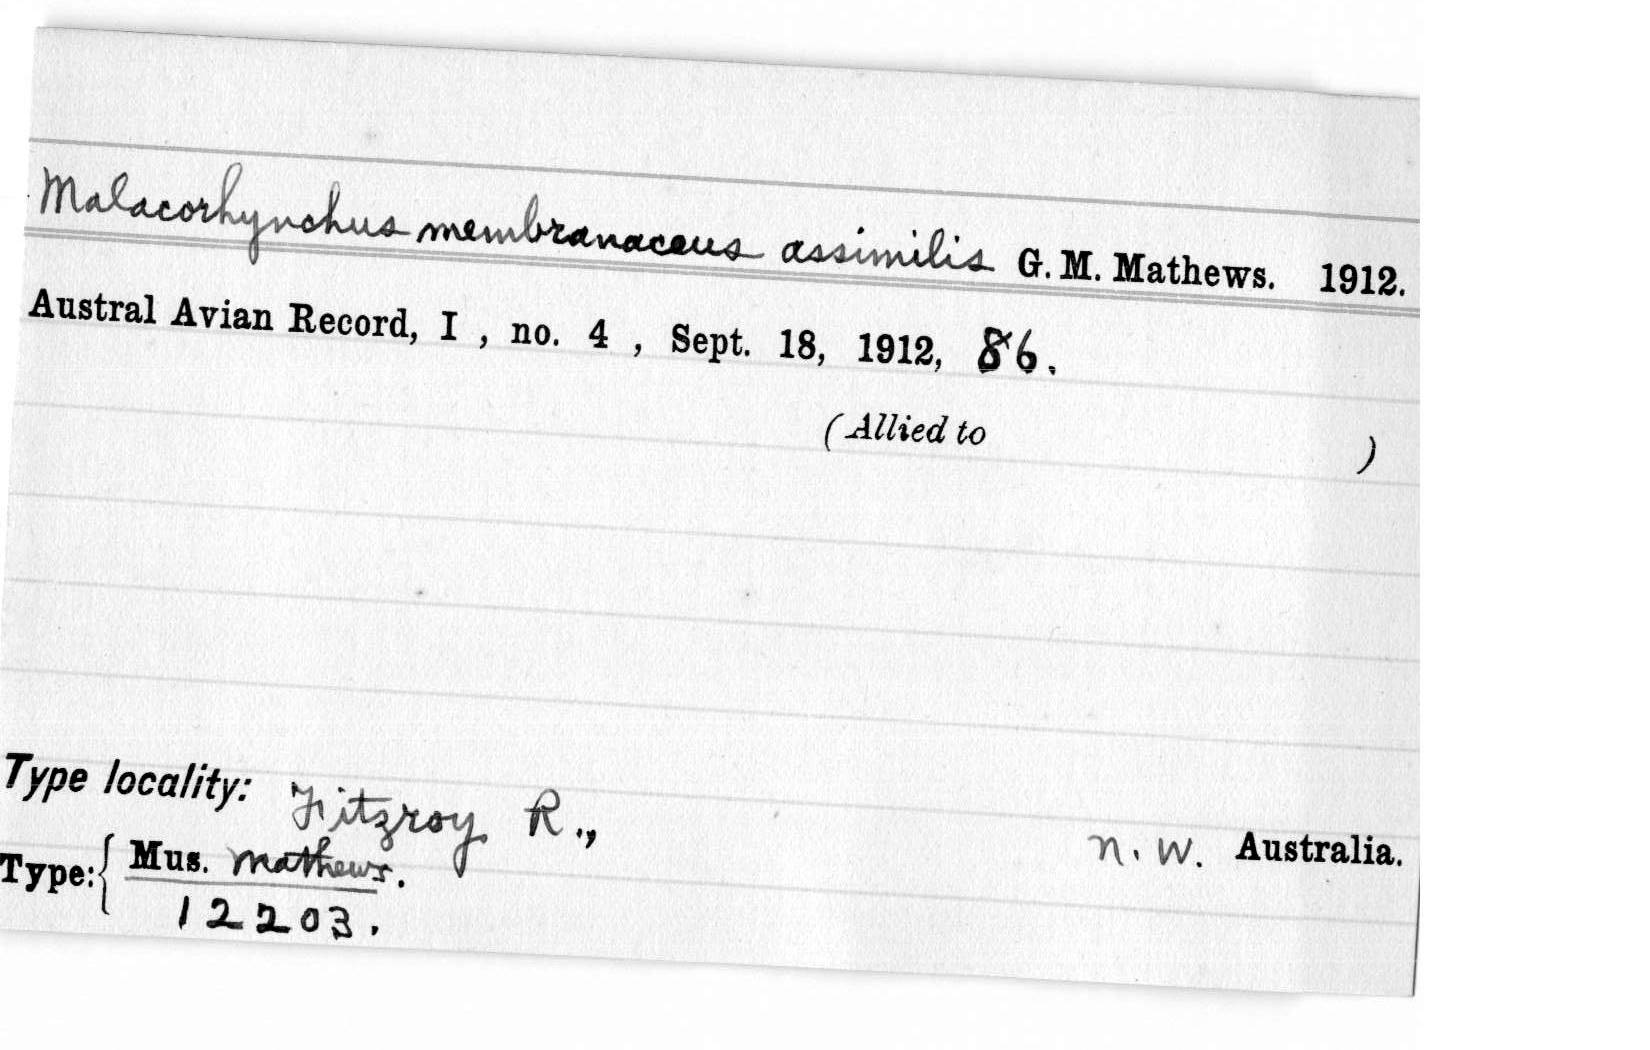 Malacorhynchus membranaceus assimilis G. M. Mathews. 1912.
Austral Avian Record, I , no. 4 , Sept. 18, 1912, 86.
(Allied to )
Type locality: Fitzroy R., N. W. Australia.
Type: { Mus. Mathews.
12203.